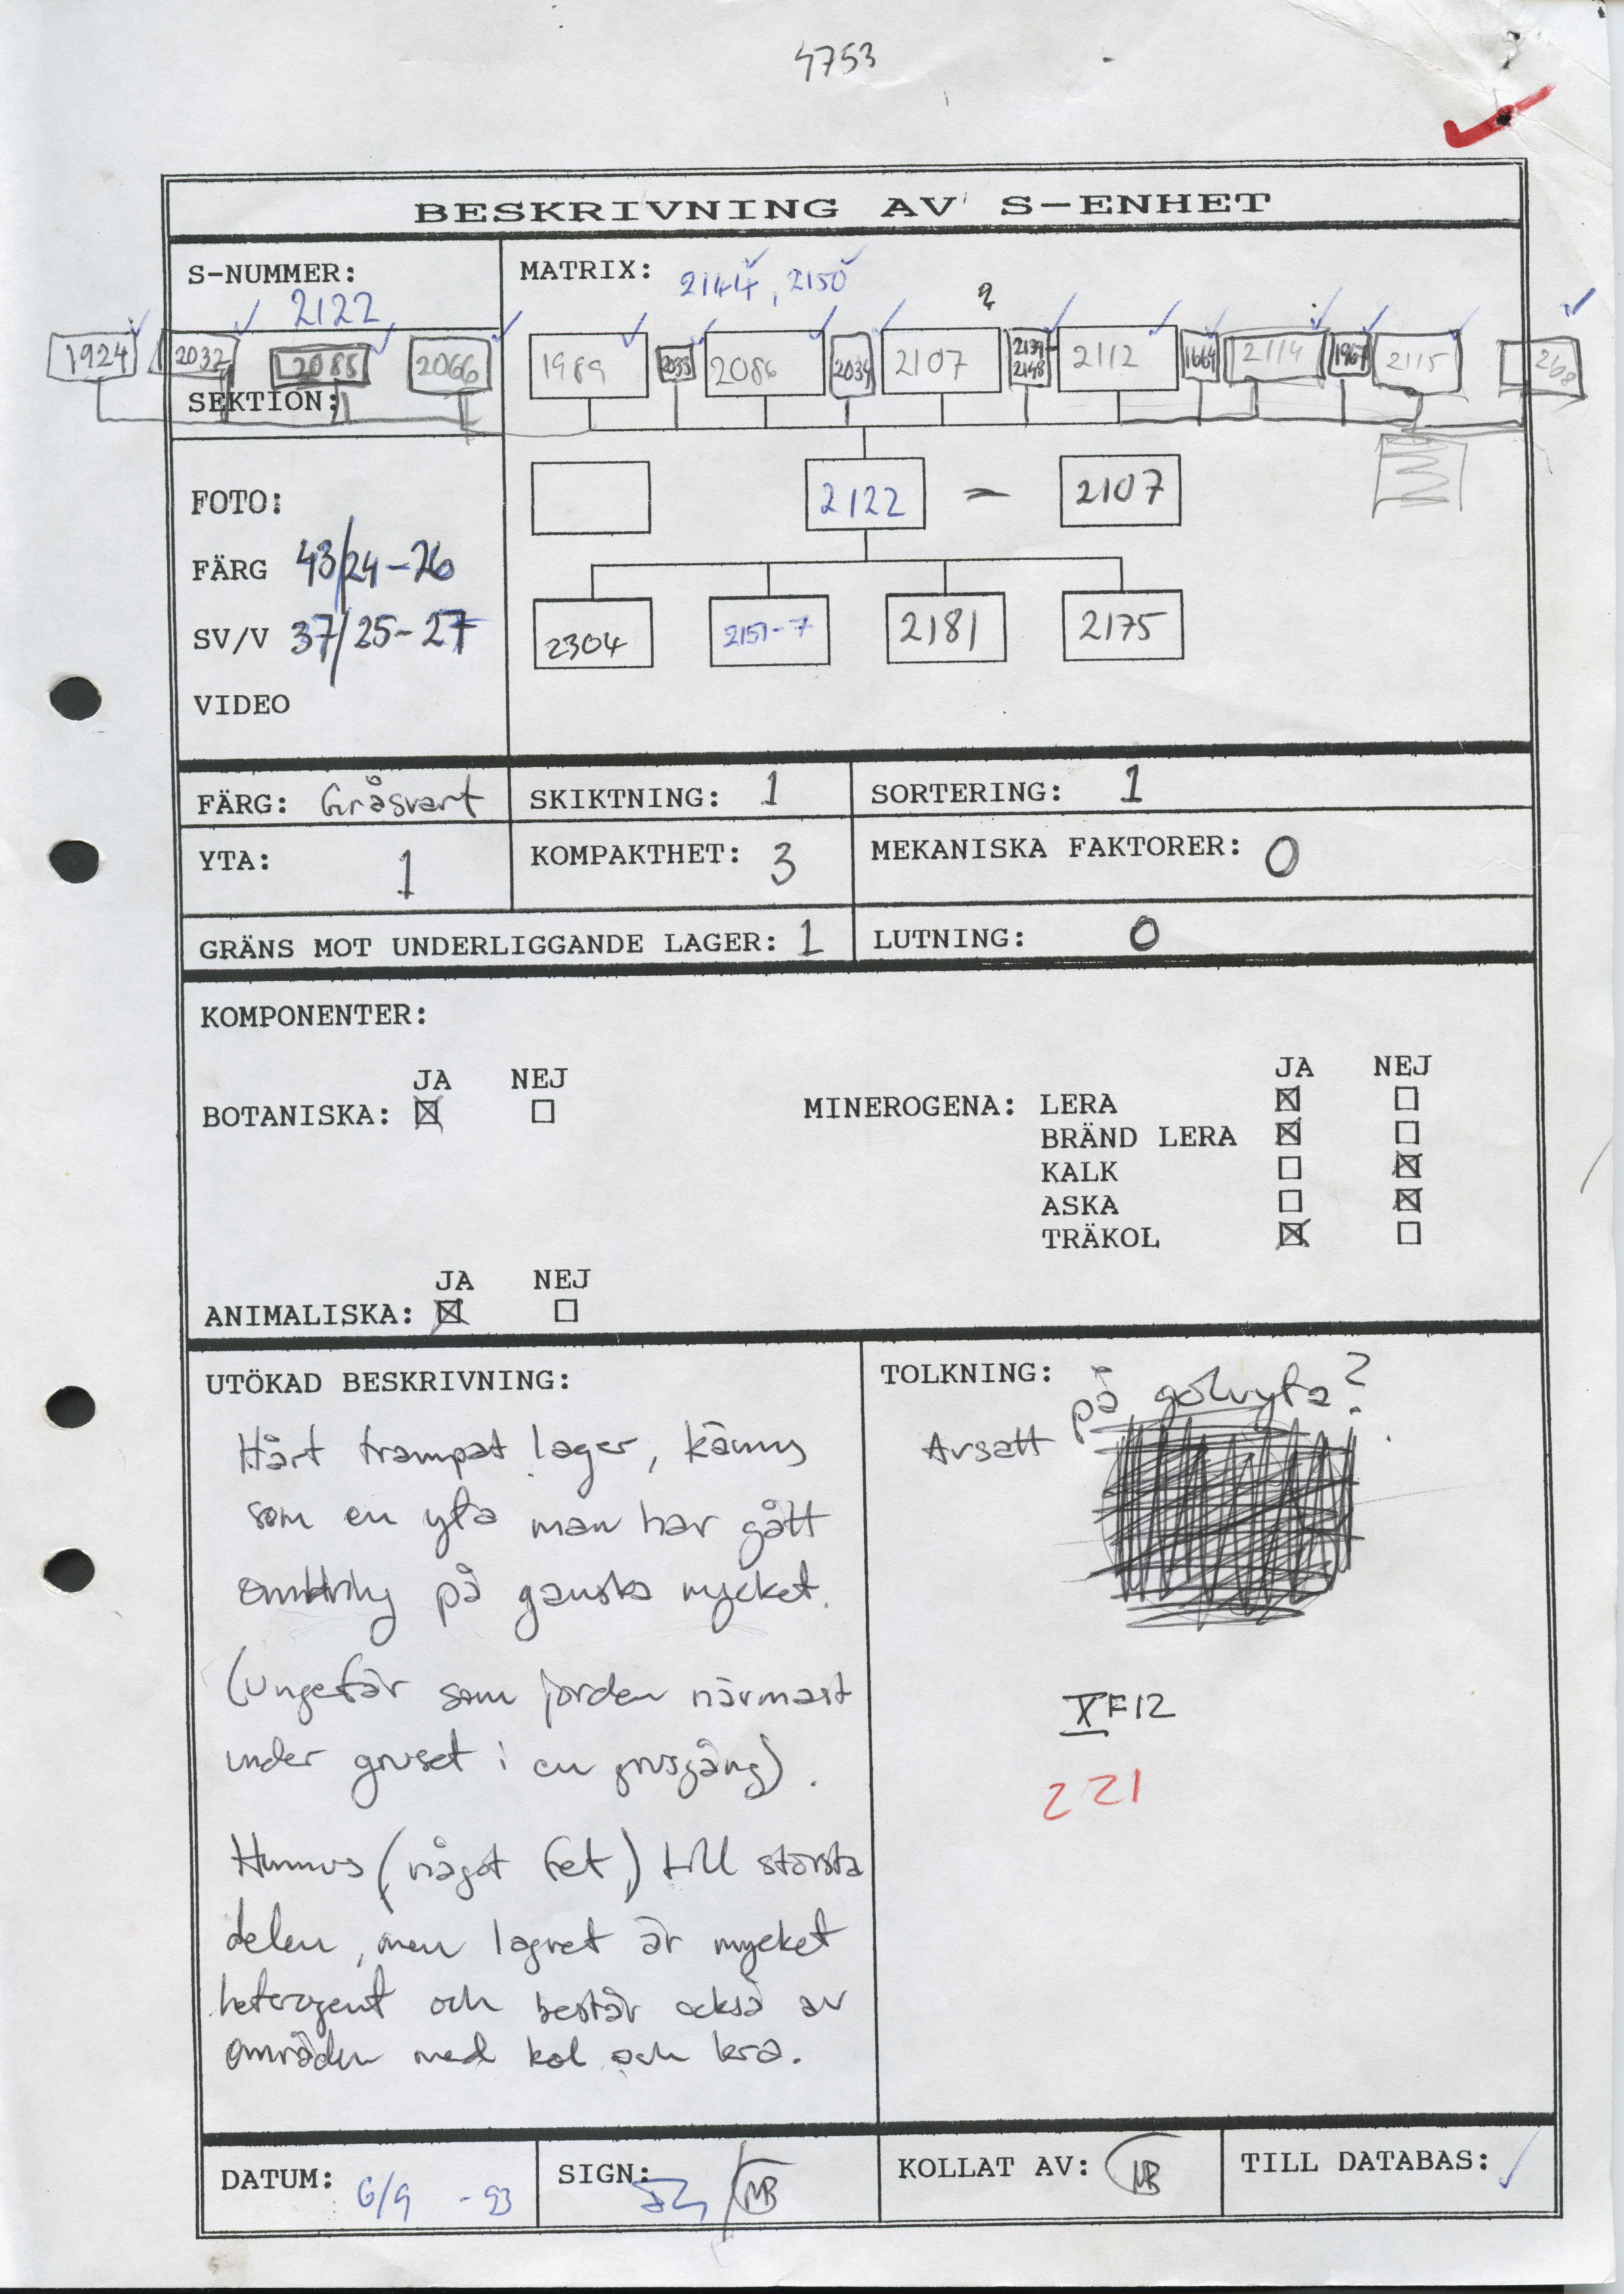 4753
BESKRIVNING AV S-ENHET
S-NUMMER:
2122
MATRIX:
2144, 2150
?
1924 2032 2085 2066 1989 2033 2086 2034 2107 2139- 2148 2112 1664 2114 1967 2115
SEKTION:
2122 - 2107
FOTO:
FÄRG 43/24-26
SV/V 37/25-27
VIDEO
2304 2151-7 2181 2175
FÄRG: Gråsvart SKIKTNING: 1 SORTERING: 1
YTA: 1 KOMPAKTHET: 3 MEKANISKA FAKTORER: 0
GRÄNS MOT UNDERLIGGANDE LAGER: 1 LUTNING: 0
KOMPONENTER:
JA NEJ
BOTANISKA: ☒ ☐
JA NEJ
MINEROGENA: LERA ☒ ☐
BRÄND LERA ☒ ☐
KALK ☐ ☒
ASKA ☐ ☒
TRÄKOL ☒ ☐
JA NEJ
ANIMALISKA: ☒ ☐
UTÖKAD BESKRIVNING:
Hårt trampat lager, känns
som en yta man har gått
omkring på ganska mycket.
(Ungefär som jorden närmast
under gruset i en grusgång).
Humus (något fet) till största
delen, men lagret är mycket
heterogent och består också av
områden med kol och lera.
TOLKNING:
Avsatt på golvyta?
XF12
221
DATUM: 6/9 -93 SIGN: MB KOLLAT AV: MB TILL DATABAS: ✓